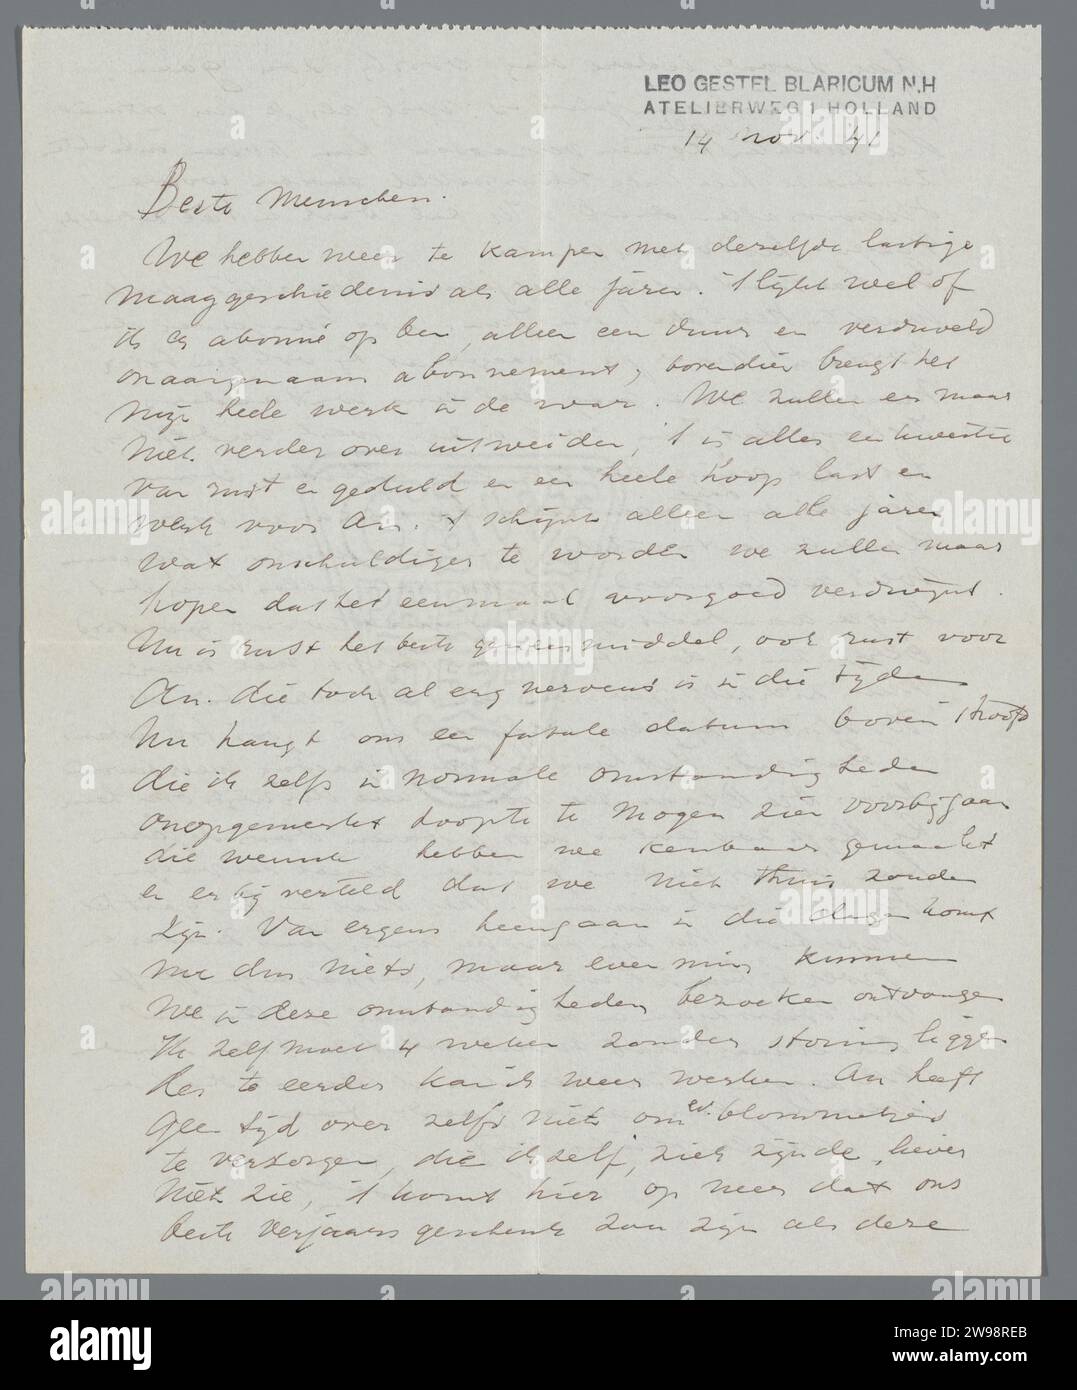 LEO GESTEL BLARICUM N.H
ATELIERWEG 1 HOLLAND
14 nov. 41
Beste Menschen.
We hebben weer te kampen met dezelfde lastige
maaggeschiedenis als alle jaren. 't lijkt wel of
ik er abonné op ben, alleen een duur en verduveld
onaangenaam abonnement, bovendien brengt het
mijn heele werk in de war. We zullen er maar
niet verder over uitweiden, 't is alles een kwestie
van rust en geduld en een heele hoop last en
werk voor An. 't schijnt alleen alle jaren
wat onschuldiger te worden we zullen maar
hopen dat het eenmaal voorgoed verdwijnt.
Nu is rust het beste geneesmiddel, ook rust voor
An. die toch al erg nerveus is in die tijden
Nu hangt ons een fatale datum boven 't hoofd
die ik zelfs in normale omstandigheden
onopgemerkt hoopte te mogen zien voorbijgaan
die wensch hebben we kenbaar gemaakt
en erbij verteld dat we niet thuis zouden
zijn. Van ergens heengaan in die dagen komt
nu dus niets, maar even min kunnen
we in deze omstandigheden bezoeken ontvangen
Ik zelf moet 4 weken zonder storing liggen
des te eerder kan ik weer werken. An heeft
geen tijd over zelfs niet om ev. blommetjes
te verzorgen, die ik zelf, ziek zijnde, liever
niet zie, 't komt hier op neer dat ons
beste verjaarsgeschenk zou zijn als deze
alamy
Image ID: 2W98REB
www.alamy.com